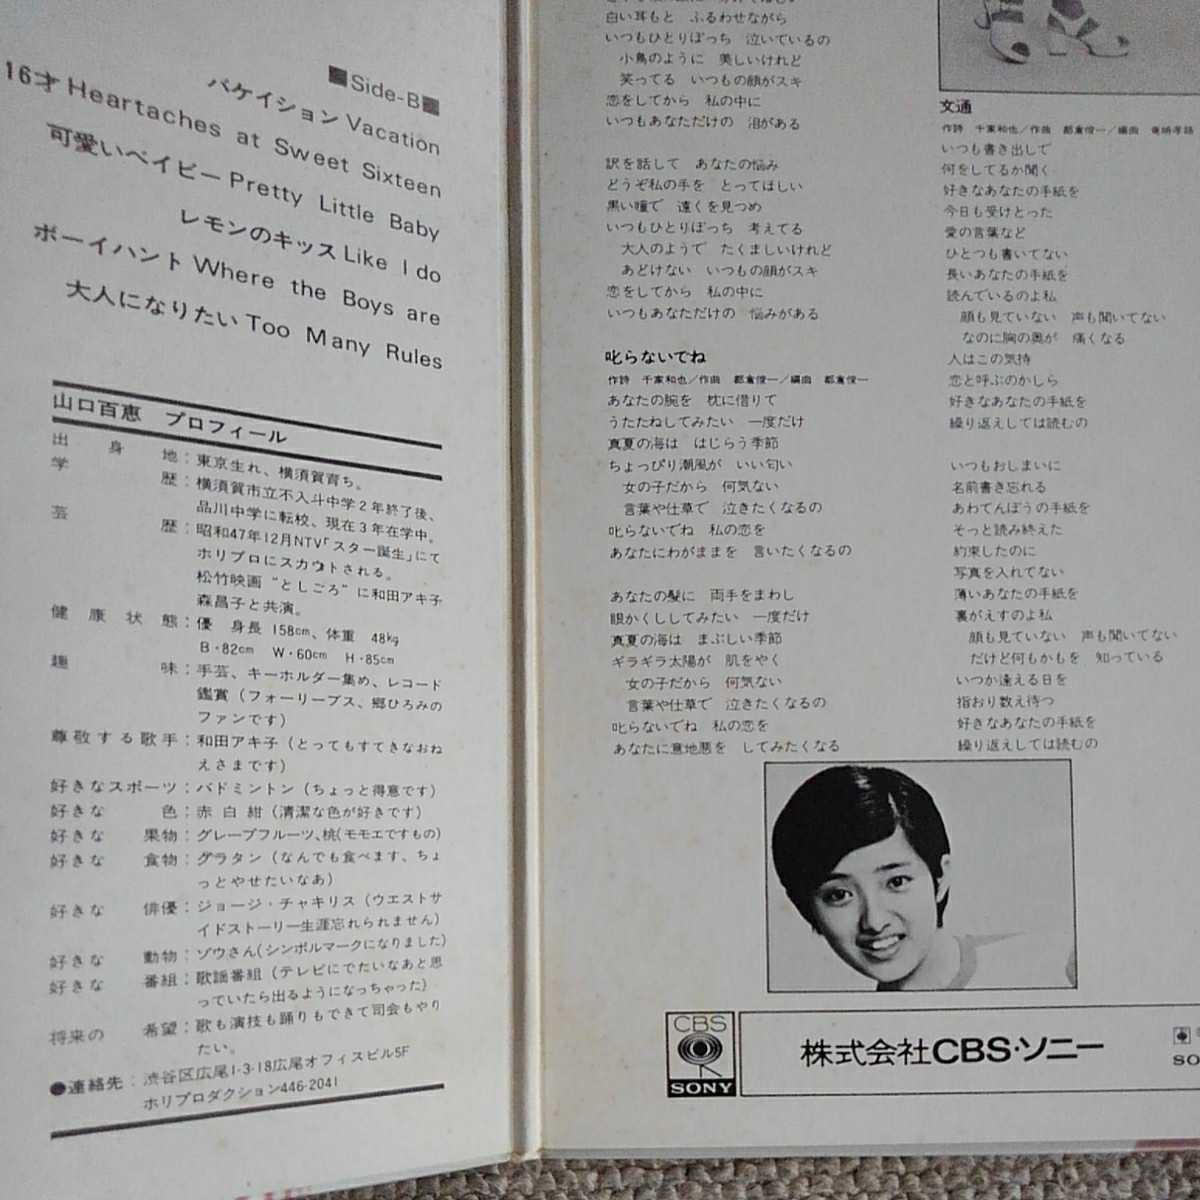 ■Side-B■
バケイション Vacation
16才 Heartaches at Sweet Sixteen
可愛いベイビー Pretty Little Baby
レモンのキッス Like I do
ボーイハント Where the Boys are
大人になりたい Too Many Rules
山口百恵 プロフィール
出身地：東京生れ、横須賀育ち。
学歴：横須賀市立不入斗中学2年終了後、
品川中学に転校、現在3年在学中。
芸歴：昭和47年12月NTV「スター誕生」にて
ホリプロにスカウトされる。
松竹映画“としごろ”に和田アキ子
森昌子と共演。
健康状態：優 身長158cm、体重 48kg
B・82cm W・60cm H・85cm
趣味：手芸、キーホルダー集め、レコード
鑑賞（フォーリーブス、郷ひろみの
ファンです）
尊敬する歌手：和田アキ子（とってもすてきなおね
えさまです）
好きなスポーツ：バドミントン（ちょっと得意です）
好きな色：赤 白 紺（清潔な色が好きです）
好きな果物：グレープフルーツ、桃（モモエですもの）
好きな食物：グラタン（なんでも食べます、ちょ
っとやせたいなあ）
好きな俳優：ジョージ・チャキリス（ウエストサ
イドストーリー生涯忘れられません）
好きな動物：ゾウさん（シンボルマークになりました）
好きな番組：歌謡番組（テレビにでたいなあと思
っていたら出るようになっちゃった）
将来の希望：歌も演技も踊りもできて司会もやり
たい。
●連絡先：渋谷区広尾1-3-18広尾オフィスビル5F
ホリプロダクション446-2041
白い耳もと ふるわせながら
いつもひとりぼっち 泣いているの
小鳥のように 美しいけれど
笑ってる いつもの顔がスキ
恋をしてから 私の中に
いつもあなただけの 泪がある
訳を話して あなたの悩み
どうぞ私の手を とってほしい
黒い瞳で 遠くを見つめ
いつもひとりぼっち 考えてる
大人のようで たくましいけれど
あどけない いつもの顔がスキ
恋をしてから 私の中に
いつもあなただけの 悩みがある
叱らないでね
作詩 千家和也／作曲 都倉俊一／編曲 都倉俊一
あなたの腕を 枕に借りて
うたたねしてみたい 一度だけ
真夏の海は はじらう季節
ちょっぴり潮風が いい匂い
女の子だから 何気ない
言葉や仕草で 泣きたくなるの
叱らないでね 私の恋を
あなたにわがままを 言いたくなるの
あなたの髪に 両手をまわし
眼かくししてみたい 一度だけ
真夏の海は まぶしい季節
ギラギラ太陽が 肌をやく
女の子だから 何気ない
言葉や仕草で 泣きたくなるの
叱らないでね 私の恋を
あなたに意地悪を してみたくなる
文通
作詩 千家和也／作曲 都倉俊一／編曲
いつも書き出しで
何をしてるか聞く
好きなあなたの手紙を
今日も受けとった
愛の言葉など
ひとつも書いてない
長いあなたの手紙を
読んでいるのよ私
顔も見ていない 声も聞いてない
なのに胸の奥が 痛くなる
人はこの気持
恋と呼ぶのかしら
好きなあなたの手紙を
繰り返えしては読むの
いつもおしまいに
名前書き忘れる
あわてんぼうの手紙を
そっと読み終えた
約束したのに
写真を入れてない
薄いあなたの手紙を
裏がえすのよ私
顔も見ていない 声も聞いてない
だけど何もかもを 知っている
いつか逢える日を
指おり数え待つ
好きなあなたの手紙を
繰り返えしては読むの
CBS
SONY
株式会社CBS・ソニー